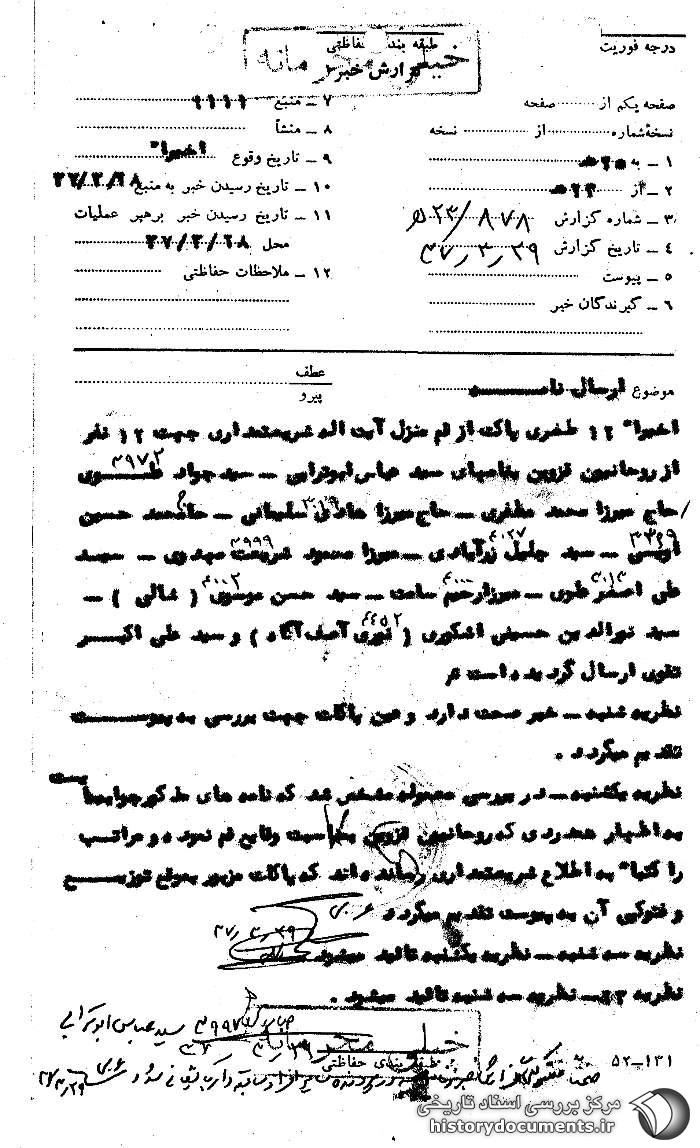 درجه فوریت
طبقه بندی حفاظتی
خیلی محرمانه
گزارش خبر
صفحه یکم از صفحه
نسخهٔ شماره از نسخه
۱ ــ به
۲ ــ از
۳ ــ شماره گزارش ۲۳/۸۷۸
۴ ــ تاریخ گزارش ۳۷/۳/۲۹
۵ ــ پیوست
۶ ــ گیرندگان خبر
۷ ــ منبع
۸ ــ منشأ
۹ ــ تاریخ وقوع اخیرا"
۱۰ ــ تاریخ رسیدن خبر به منبع ۳۷/۳/۲۸
۱۱ ــ تاریخ رسیدن خبر برهبر عملیات
محل ۳۷/۳/۲۸
۱۲ ــ ملاحظات حفاظتی
موضوع ارسال نامه
عطف
پیرو
اخیرا" ۱۲ طغری پاکت از قم منزل آیت اله شریعتمداری جهت ۱۲ نفر
از روحانیون قزوین بنامهای سید عباس ابوترابی ــ سید جواد علوی
حاج میرزا محمد مظفری ــ حاج میرزا هادی سلیمانی ــ حاج محمد حسین
اویسی ــ سید جلیل زرآبادی ــ میرزا محمود شریعت مهدوی ــ سید
علی اصغر علوی ــ میرزا رحیم سامت ــ سید حسن موسوی ( شالی ) ــ
سید نورالدین حسینی اشکوری ( نوری آصف آگاه ) و سید علی اکبر
تقوی ارسال گردیده است
نظریه شنبه ــ خبر صحت دارد و عین پاکات جهت بررسی به پیوست
تقدیم میگردد .
نظریه یکشنبه ــ در بررسی معموله مشخص شد که نامه های مذکور جوابیه ایست
به اظهار همدردی که روحانیون قزوین بمناسبت وقایع قم نموده و مراتب
را کتبا" به اطلاع شریعتمداری رسانده اند که پاکات مزبور بموقع توزیع
و فتوکپی آن به پیوست تقدیم میگردد
۳۷/۳/۲۹
نظریه سه شنبه ــ نظریه یکشنبه تائید میشود
نظریه ۲۳ ــ نظریه سه شنبه تائید میشود .
سید عباس ابوترابی
خیلی محرمانه
طبقه بندی حفاظتی
۵۲ــ۱۳۱
مرکز بررسی اسناد تاریخی
historydocuments.ir